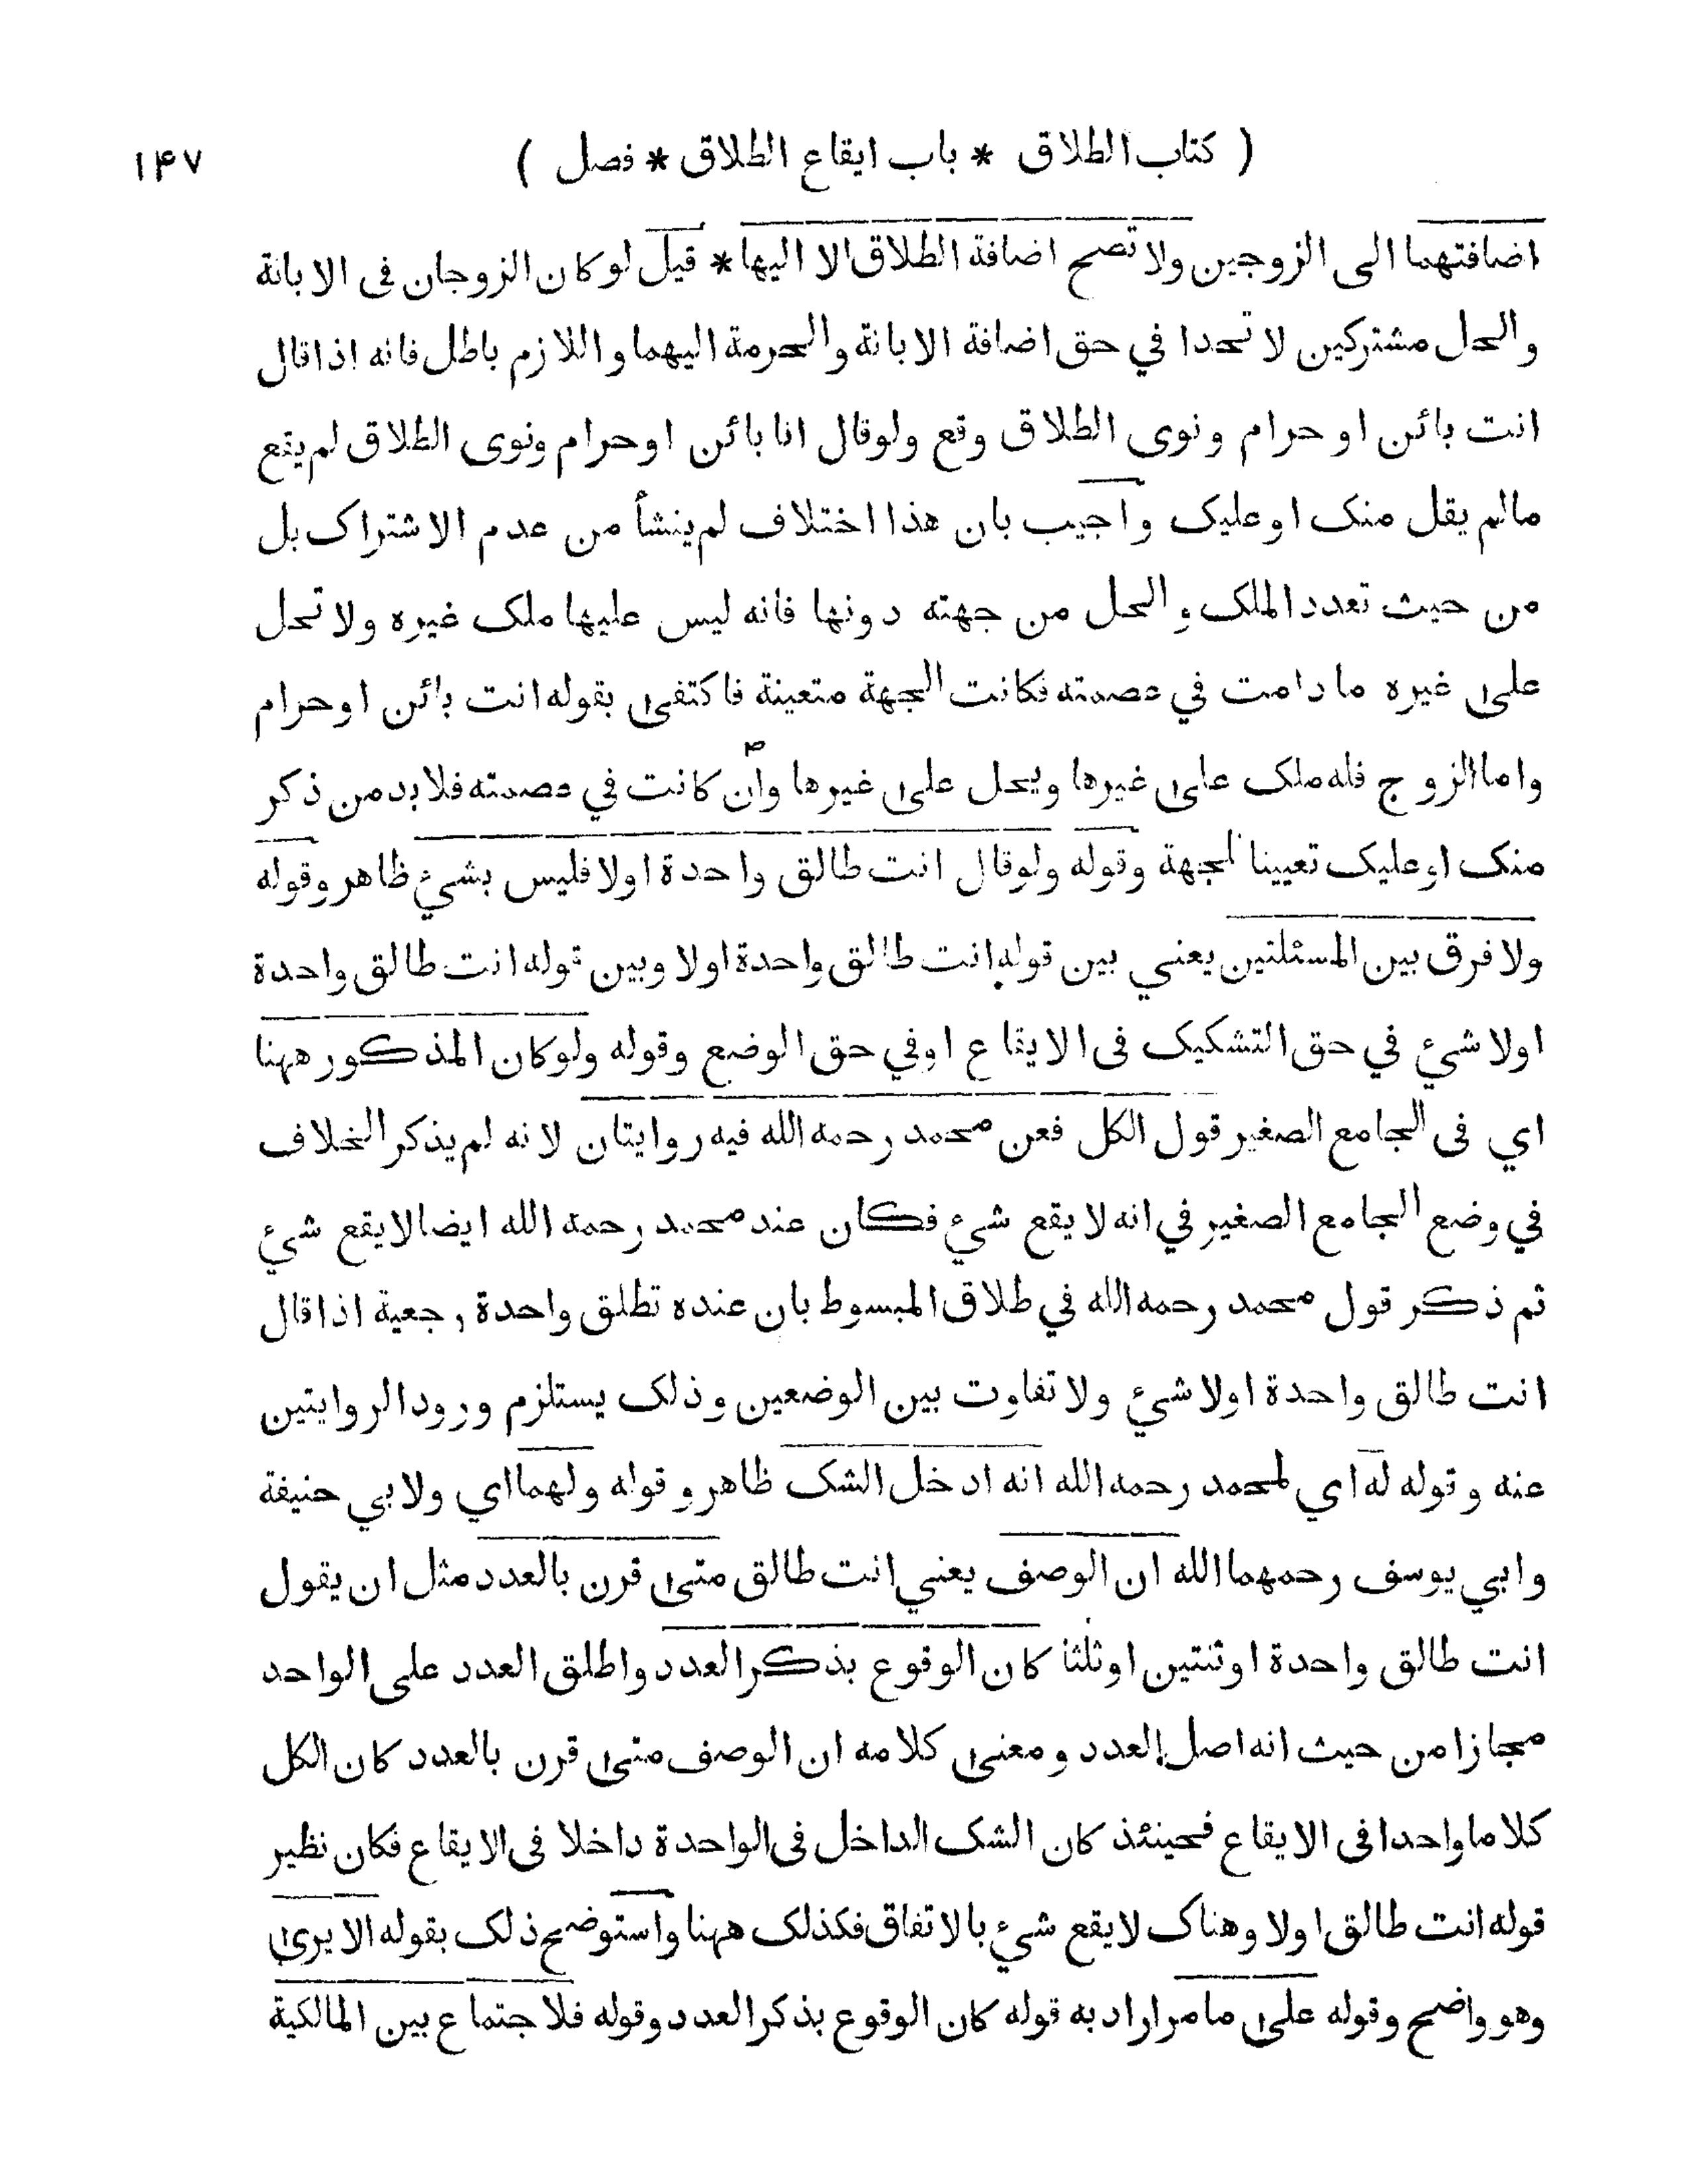 ( كتاب الطلاق * باب ايقاع الطلاق * فصل ) ۱۴۷
اضافتهما الى الزوجين ولا تصح اضافة الطلاق الا اليها * قيل لو كان الزوجان فى الابانة
والحل مشتركين لاتحدا في حق اضافة الابانة والحرمة اليهما و اللازم باطل فانه اذا قال
انت بائن او حرام ونوى الطلاق وقع ولوقال انا بائن او حرام ونوى الطلاق لم يقع
مالم يقل منك او عليك واجيب بان هذا اختلاف لم ينشأ من عدم الاشتراك بل
من حيث تعدد الملك و الحل من جهته دونها فانه ليس عليها ملك غيره ولا تحل
على غيره ما دامت في عصمته فكانت الجهة متعينة فاكتفى بقوله انت بائن او حرام
واما الزوج فله ملك على غيرها ويحل على غيرها وان كانت في عصمته فلا بد من ذكر
منك او عليك تعيينا لجهة وقوله ولوقال انت طالق واحدة اولا فليس بشيء ظاهر وقوله
ولا فرق بين المسئلتين يعني بين قوله انت طالق واحدة اولا وبين قوله انت طالق واحدة
اولا شئ في حق التشكيك فى الايقاع اوفي حق الوضع وقوله ولوكان المذكور ههنا
اي فى الجامع الصغير قول الكل فعن محمد رحمه الله فيه روايتان لانه لم يذكر الخلاف
في وضع الجامع الصغير في انه لا يقع شيء فكان عند محمد رحمه الله ايضا لا يقع شئ
ثم ذكر قول محمد رحمه الله في طلاق المبسوط بان عنده تطلق واحدة رجعية اذا قال
انت طالق واحدة اولا شيء ولا تفاوت بين الوضعين وذلك يستلزم ورود الروايتين
عنه و قوله له اي لمحمد رحمه الله انه ادخل الشك ظاهر و قوله ولهما اي ولابي حنيفة
وابي يوسف رحمهما الله ان الوصف يعني انت طالق متى قرن بالعدد مثل ان يقول
انت طالق واحدة او ثنتين او ثلثا كان الوقوع بذكر العدد واطلق العدد على الواحد
مجازا من حيث انه اصل العدد و معنى كلامه ان الوصف متى قرن بالعدد كان الكل
كلاما واحدا فى الايقاع فحينئذ كان الشك الداخل فى الواحدة داخلا فى الايقاع فكان نظير
قوله انت طالق اولا وهناك لا يقع شيء بالاتفاق فكذلك ههنا واستوضح ذلك بقوله الا يرى
وهو واضح وقوله على ما مر اراد به قوله كان الوقوع بذكر العدد وقوله فلاجتماع بين المالكية